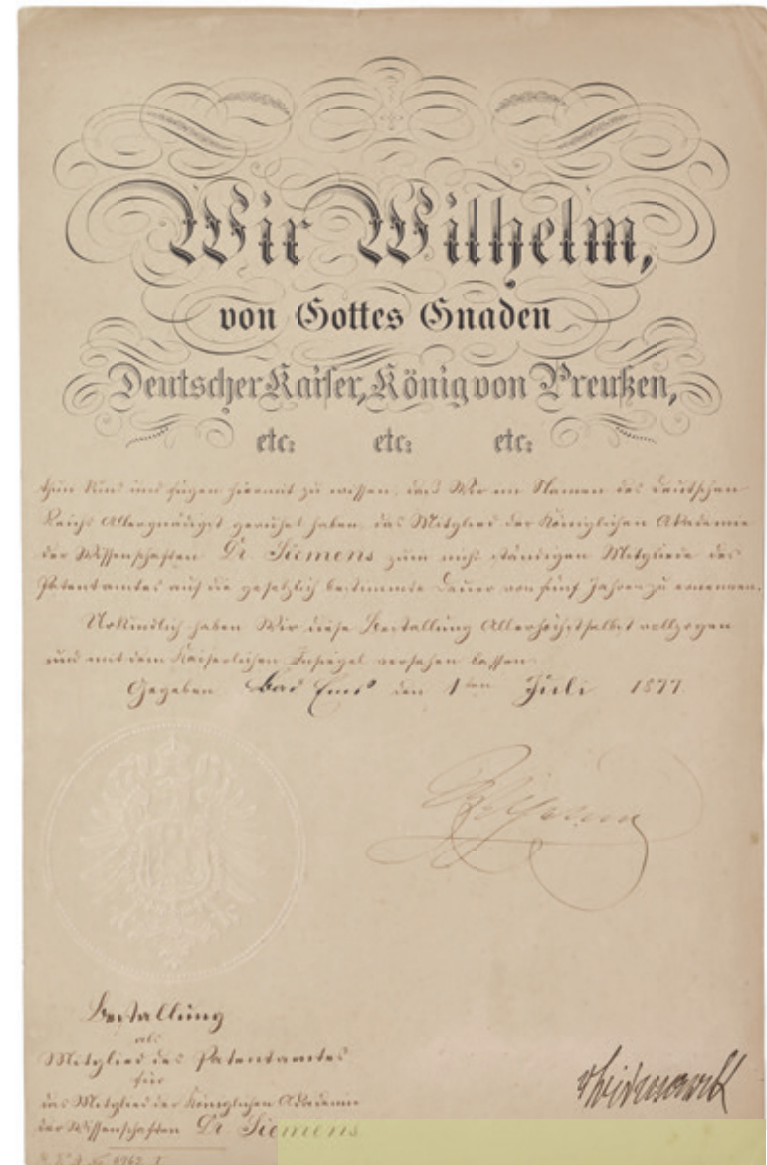 Wir Wilhelm,
von Gottes Gnaden
Deutscher Kaiser, König von Preußen,
etc: etc: etc:
thun kund und fügen hiermit zu wissen, daß Wir im Namen des Deutschen
Reichs Allergnädigst geruhet haben, das Mitglied der Königlichen Akademie
der Wissenschaften Dr. Siemens zum nicht ständigen Mitgliede des
Patentamtes auf die gesetzlich bestimmte Dauer von fünf Jahren zu ernennen.
Urkundlich haben Wir diese Bestallung Allerhöchstselbst vollzogen
und mit dem Kaiserlichen Insiegel versehen lassen.
Gegeben Bad Ems den 1ten Juli 1877.
Wilhelm
Bestallung
als
Mitglied des Patentamtes
für
das Mitglied der Königlichen Akademie
der Wissenschaften Dr. Siemens